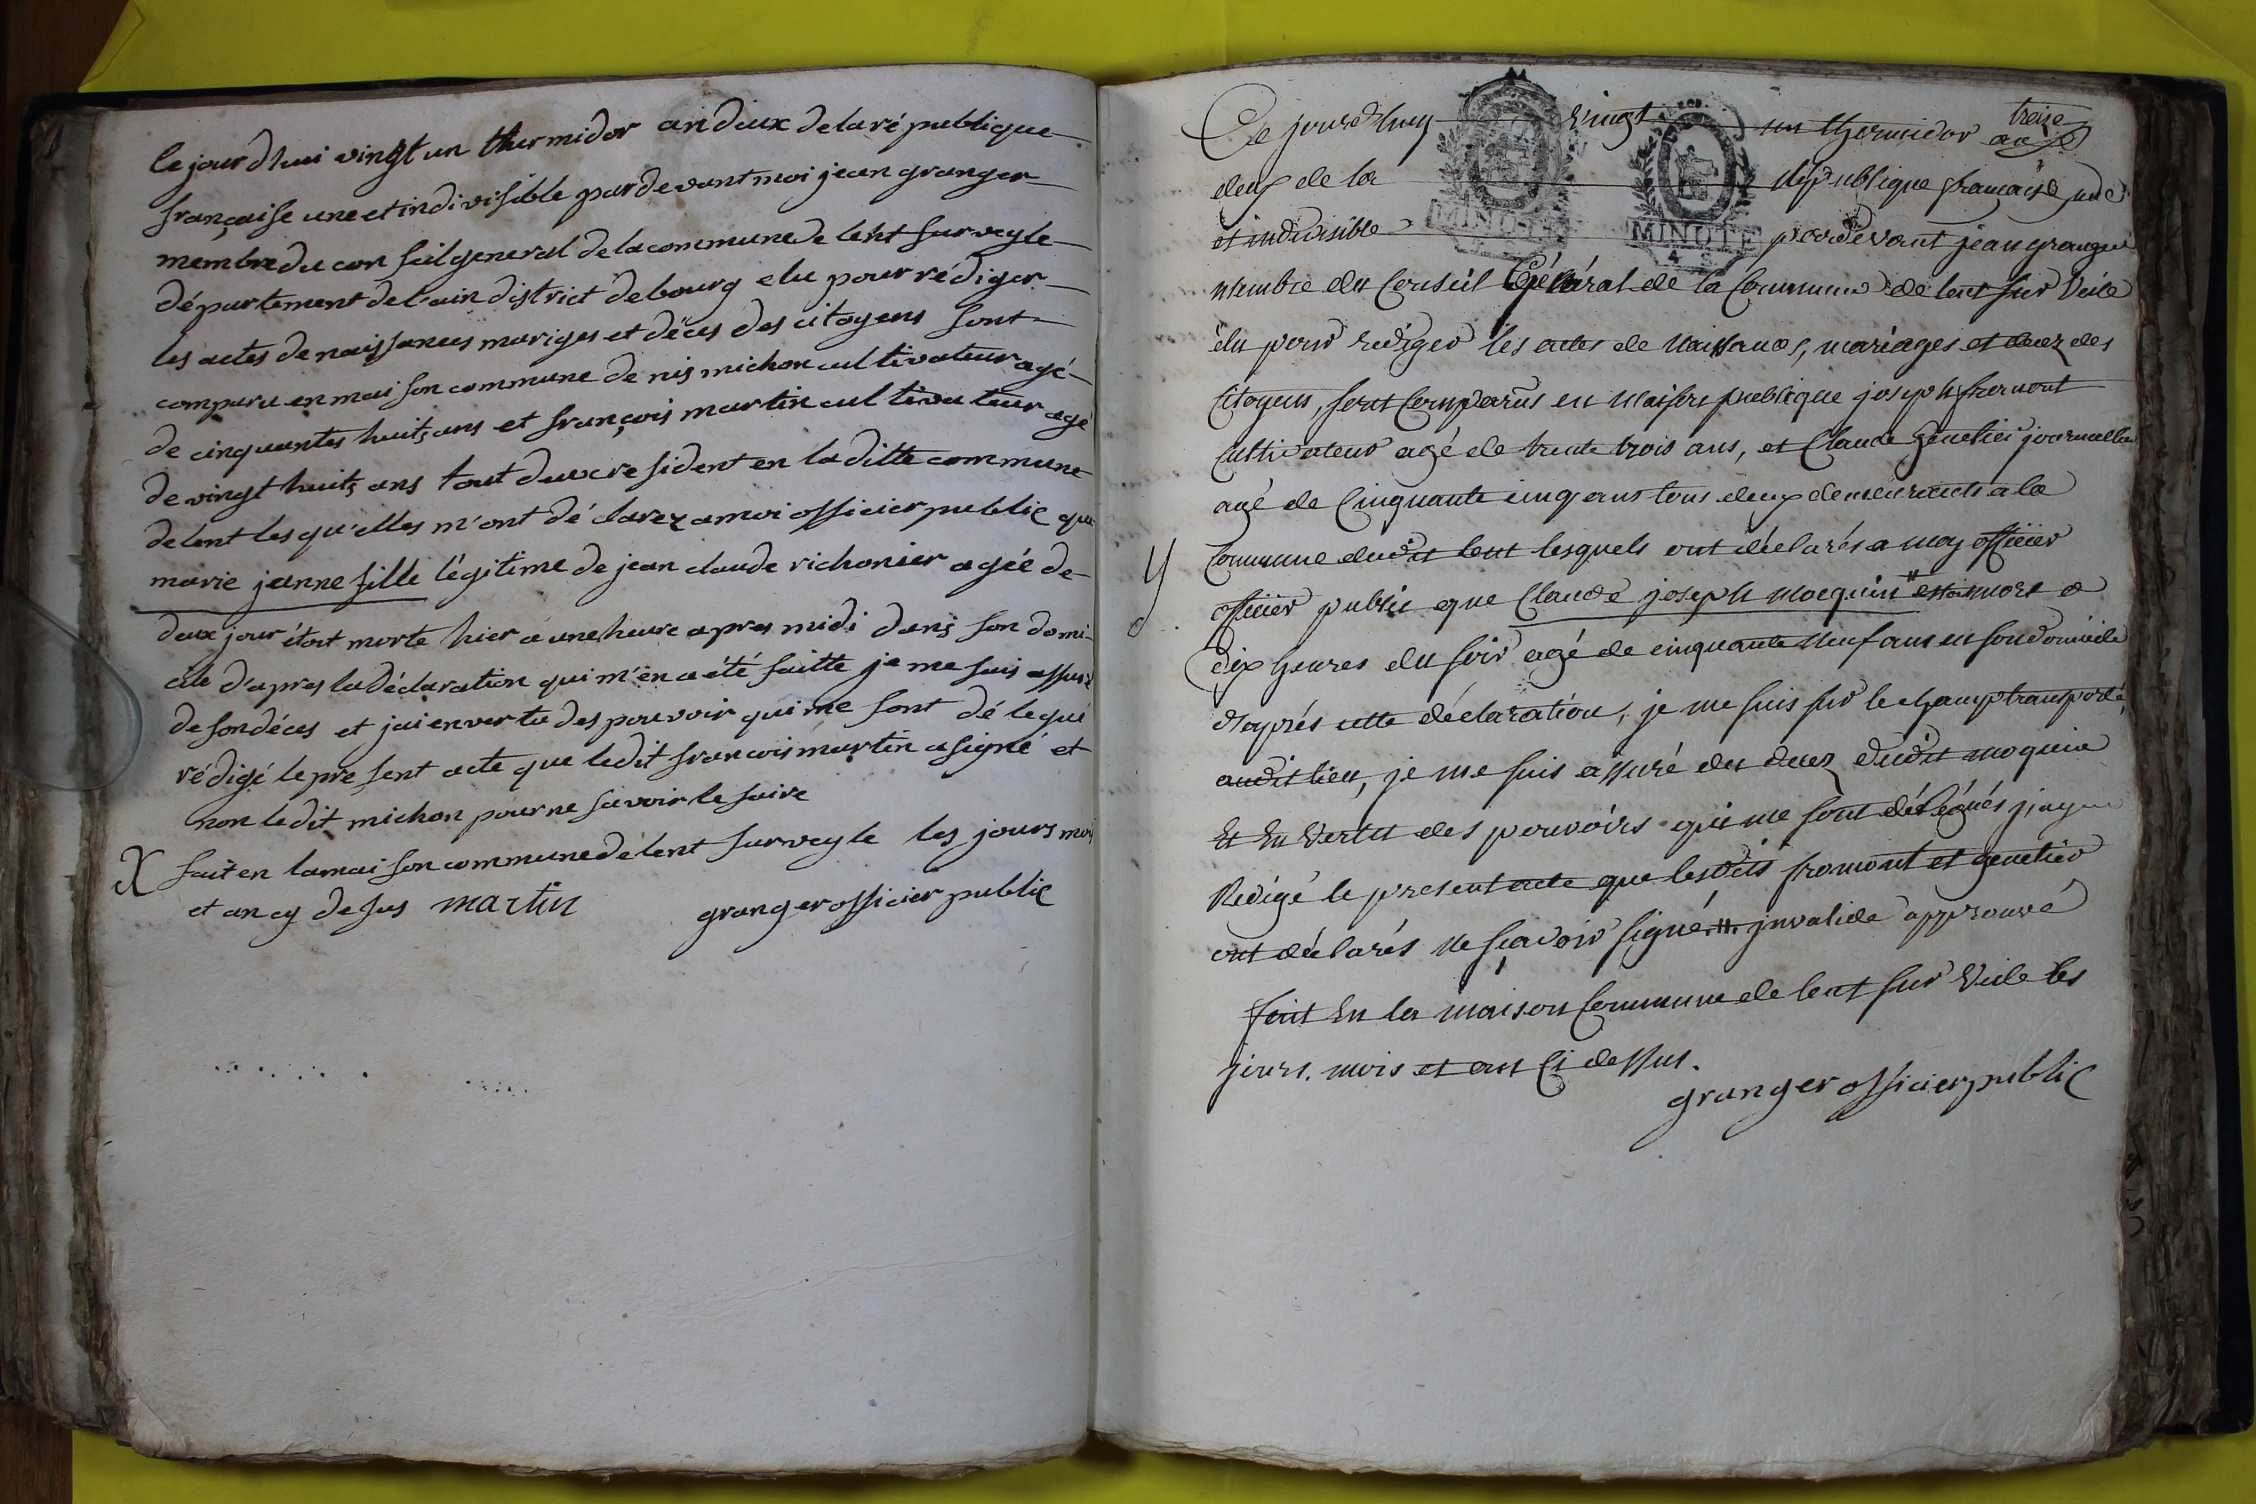 Cejourdhui vingt un thermidor an deux de la république
française une et indivisible pardevant moi jean granger
membre du conseil general de la commune de lent sur veyle
département de l'ain district de bourg elu pour rédiger
les actes de naissances mariges et déces des citoyens sont
comparu en maison commune denis michon cultivateur agé
de cinquantes huits ans et françois martin cultivateur agé
de vingt huits ans tout deux resident en laditte commune
de lent lesqu'elles m'ont déclarez a moi officier public que
marie jeanne fille légitime de jean claude richonier agée de
deux jour étoit morte hier a une heure apres midi dans son domi-
cile d'apres la déclaration qui m'en a été faitte je me suis assuré
de son déces et jai en vertu des pouvoir qui me sont délegué
rédigé le present acte que ledit françois martin a signé et
non ledit michon pour ne savoir le faire
X fait en la maison commune de lent sur veyle les jours mois
et an cy desus martin granger officier public
Ce jourdhuy vingt un thermidor treize
deux de la république française une
et indivisible pardevant jean granger
membre du Conseil Général de la Commune de lent sur Veile
élu pour rediger les actes de Naissances, mariages et decez des
Citoyens, sont Comparus en maison publique joseph fromont
Cultivateur agé de trente trois ans, et Claude genetier journallier
agé de Cinquante cinq ans tous deux demeurants a la
Commune dudit lent lesquels ont déclarés a moy officier
officier public que Claude joseph moequin " est mort a
dix heures du soir agé de cinquante neuf ans en son domicile
d'aprés cette déclaration, je me suis sur le champ transporté
audit lieu, je me suis assuré du decez dudit moquin
Et En Vertu des pouvoirs qui me sont délégués j'ay
Redigé le present acte que lesdits fromont et genetier
ont déclarés ne sçavoir signé. " invalide approuvé
fait En la maison Commune de lent sur Veile les
jours. mois et an Ci dessus.
granger officier public
MINUTE
MINUTE